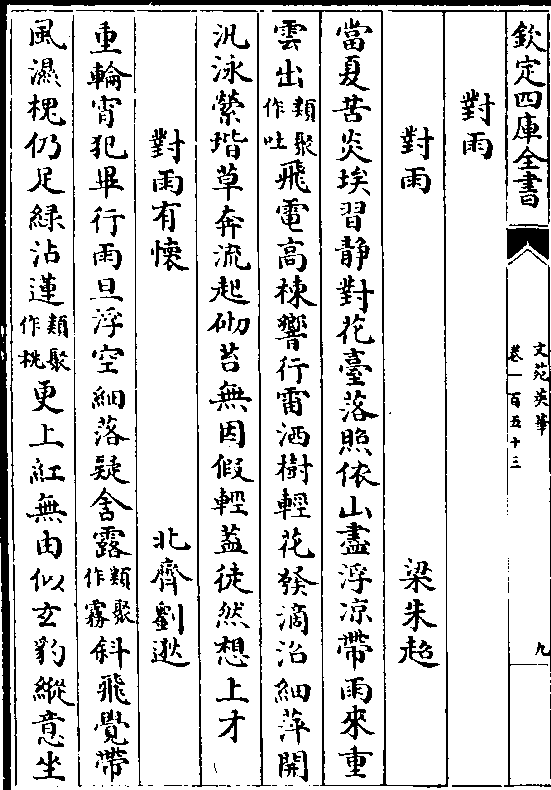 欽定四庫全書
文苑英華
卷一百五十三
九
對雨
對雨 梁朱超
當夏苦炎埃習静對花臺落照依山盡浮凉帶雨來重
雲出類聚作吐飛電高棟響行雷洒樹輕花發滴沼細萍開
汎泳縈堦草奔流起砌苔無因假輕蓋徒然想上才
對雨有懷 北齊劉逖
重輪宵犯畢行雨旦浮空細落疑含露類聚作霧斜飛覺帶
風濕槐仍足綠沾蓮類聚作桃更上紅無由似玄豹縱意坐